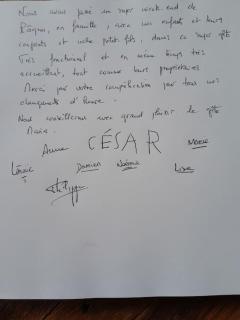 Nous avons passé un super week-end de
Pâques, en famille, avec nos enfants et leurs
conjoints et notre petit-fils, dans ce super gîte
Très fonctionnel et en même temps très
accueillant, tout comme leurs propriétaires
Merci pour votre compréhension par tous nos
changements d'heure.
Nous conseillerons avec grand plaisir le gîte
Marie
Anne CÉSAR
Damien
Philippe